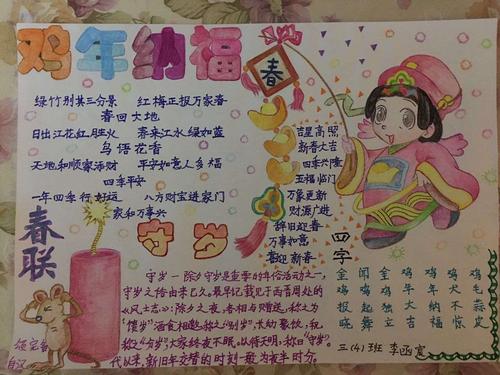 鸡年纳福
绿竹别其三分景 红梅正报万家春
春回大地
日出江花红胜火 春来江水绿如蓝
鸟语花香
天地和顺家添财 平安如意人多福
四季平安
一年四季行好运 八方财宝进家门
家和万事兴
春联
春
吉星高照
新春大吉
四季兴隆
五福临门
万象更新
财源广进
辞旧迎春
万事如意
喜迎新春
守岁
守岁一除夕守岁是重要的年俗活动之一,
守岁之俗由来已久。最早记载见于西晋周处的
《风土志》:除夕之夜,各相与赠送,称之为
“馈岁”酒食相邀,称之“别岁”,长幼聚饮,祝
称之“分岁”大家终夜不眠。以待天明,称曰“守岁”。
代以来,新旧年交替的时刻一般为夜半时分。
四字
金鸡报晓
闻鸡起舞
金鸡独立
鸡年大吉
鸡年纳福
鸡犬不惊
鸡毛蒜皮
三(4)班 李函宽